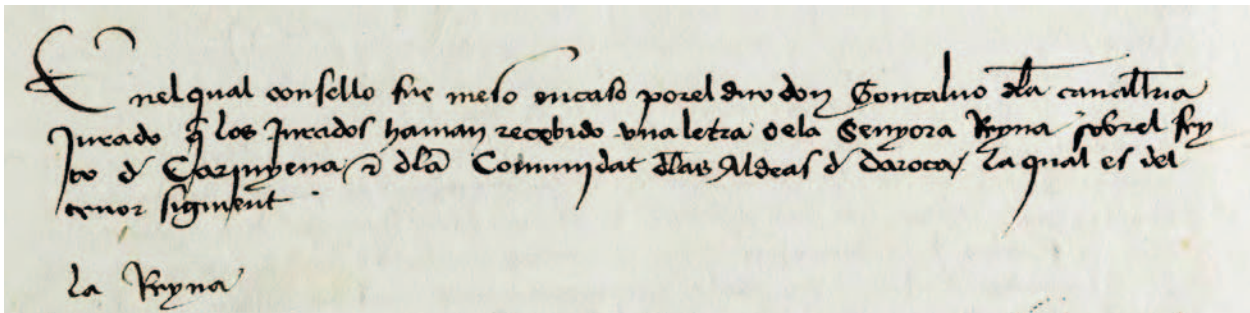 Enel qual consello fue meso encaso por el dito don Goncaluo dla cauallria
Jurado q los Jurados hauian recebido vna letra dela Senyora Reyna sobrel fey
to d Carinyena e dla Comunidat dlas Aldeas d Daroca la qual es del
tenor siguient
la Reyna